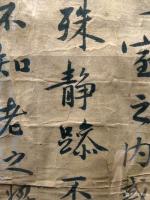 一室之内
殊静躁不
不知老之